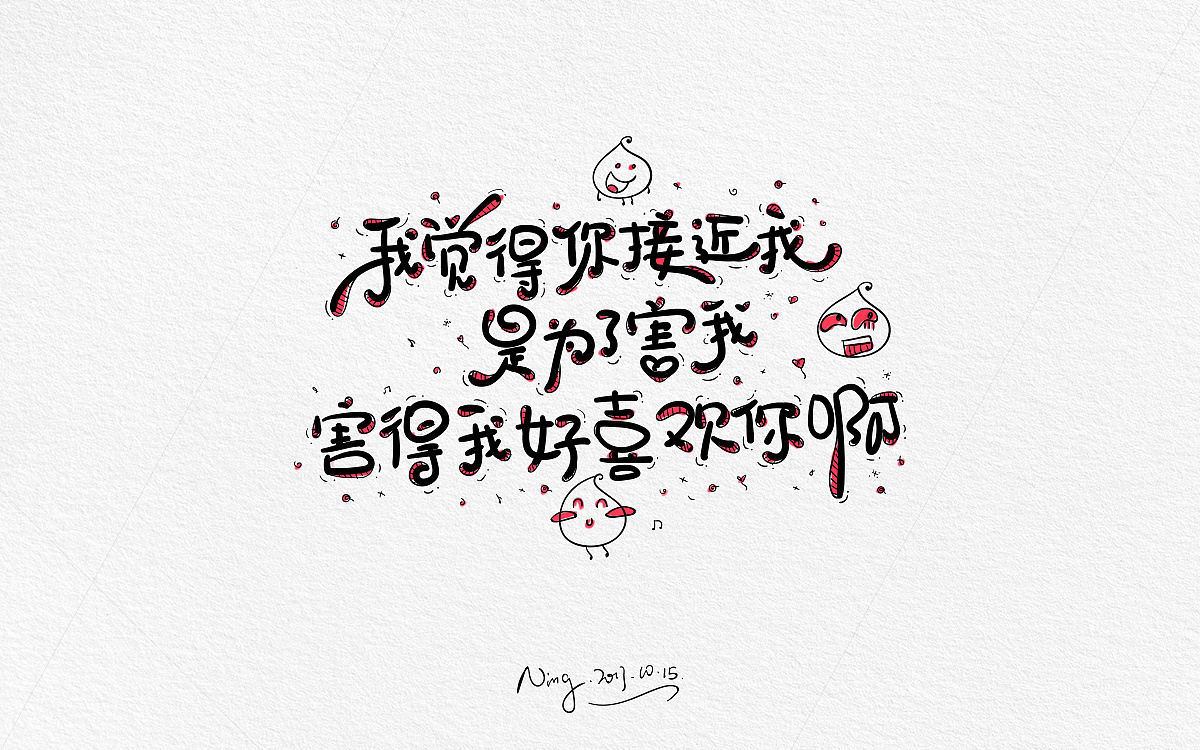 我觉得你接近我
是为了害我
害得我好喜欢你啊
Ning.2017.10.15